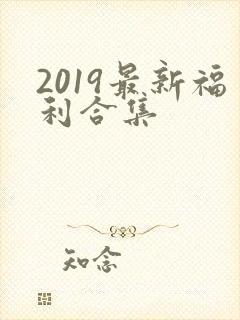 2019最新福
利合集
知念